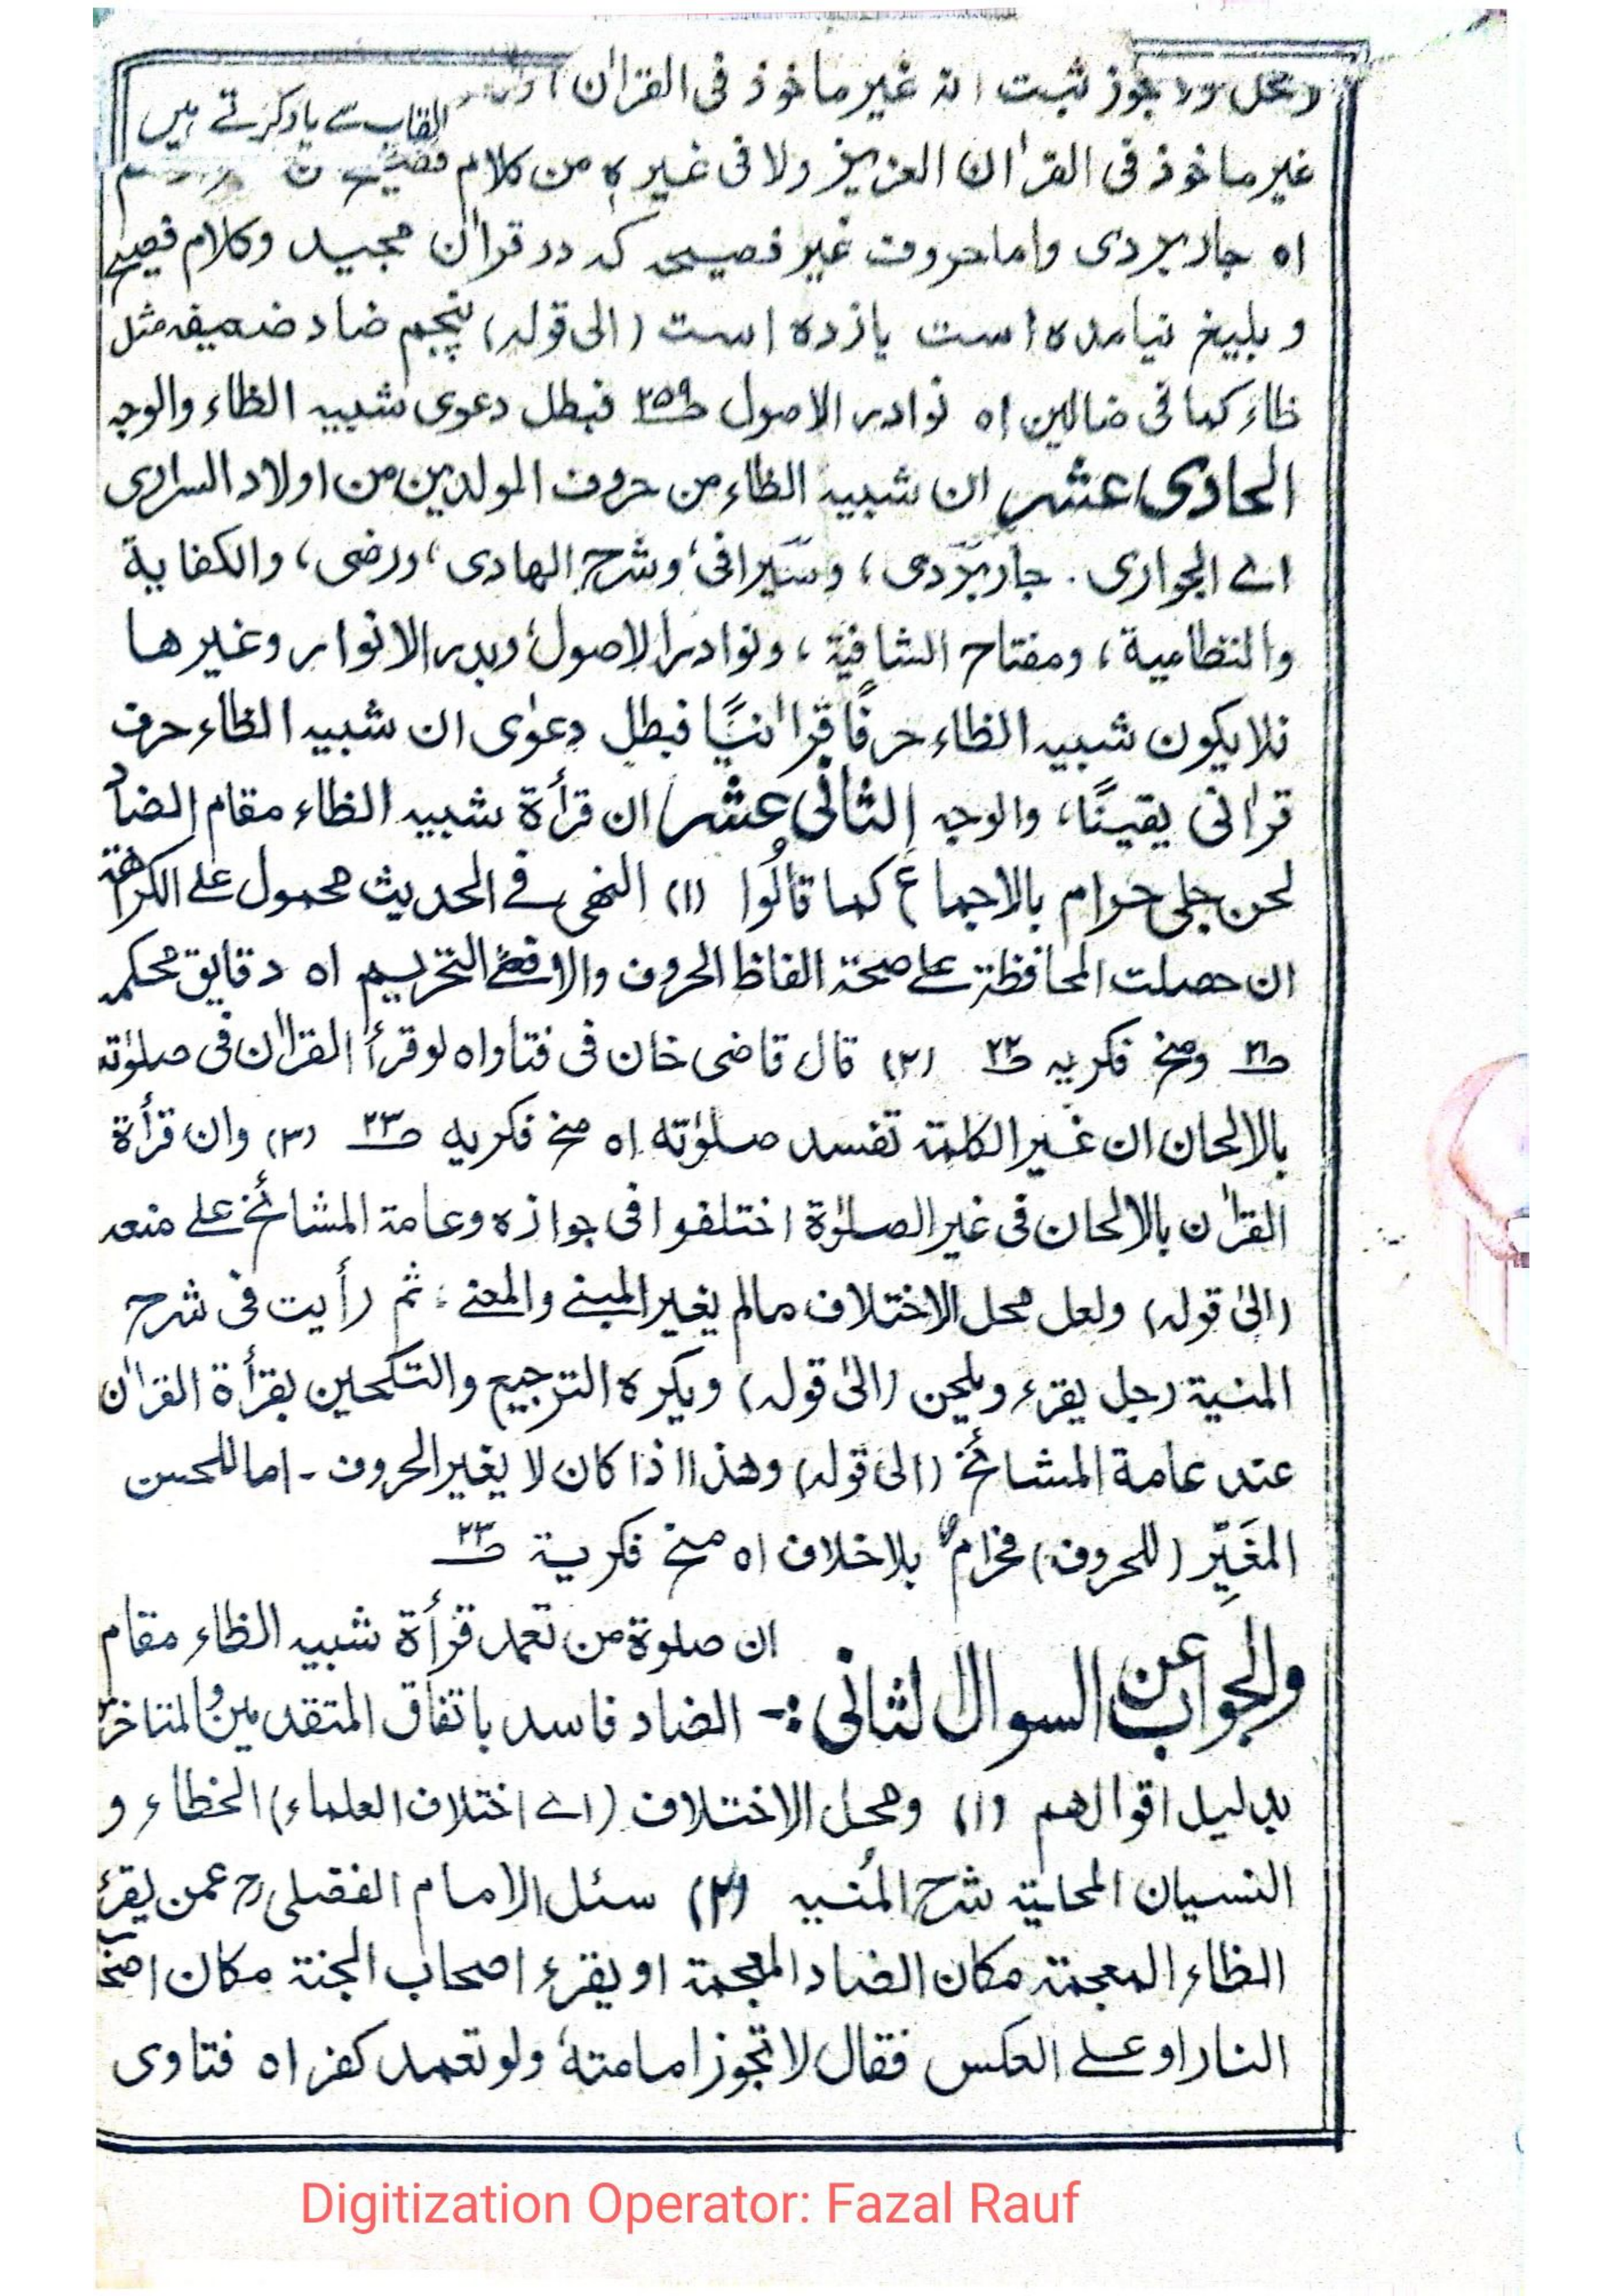 ثبت انه غير ماخوذ فى القراٰن
القاب سے یاد کرتے ہیں
غير ماخوذ فى القراٰن العزيز ولا فى غيره من كلام
اه جاربردى واما حروف غير فصيحه كه در قراٰن مجيد وكلام فصيح
و بليغ نيامده است يازده است (الى قوله) پنجم ضاد ضعيفه مثل
ظاء كما فى ضالين اه نوادر الاصول صـ٢٥٩ فبطل دعوى شبيه الظاء والوجه
الحادى عشر ان شبيه الظاء من حروف المولدين من اولاد السرارى
اے الجوارى۔ جاربردى، وسيرافى، وشرح الهادى، ورضى، والكفاية
والنظامية، ومفتاح الشافية، ونوادر الاصول، وبدر الانوار وغيرها
فلا يكون شبيه الظاء حرفًا قراٰنيًّا فبطل دعوٰى ان شبيه الظاء حرف
قراٰنى يقينًا، والوجه الثانى عشر ان قرأة شبيه الظاء مقام الضاد
لحن جلى حرام بالاجماع كما قالُوا (١) النهى فے الحديث محمول على الكراهة
ان حصلت المحافظة على صحة الفاظ الحروف والا فعلى التحريم اه دقايق محكمه
صـ٢١ ومنح فكريه صـ٢٢ (٢) قال قاضى خان فى فتاواه لو قرأ القراٰن فى صلوٰته
بالالحان ان غير الكلمة تفسد صلوٰته اه منح فكريه صـ٢٣ (٣) وان قرأة
القراٰن بالالحان فى غير الصلوٰة اختلفوا فى جوازه وعامة المشائخ على منعه
(الىٰ قوله) ولعل محل الاختلاف مالم يغير المبنے والمعنے ؛ ثم رأيت فى شرح
المنية رجل يقرء ويلحن (الىٰ قوله) ويكره الترجيع والتلحين بقرأة القراٰن
عند عامة المشائخ (الىٰ قوله) وهذا اذا كان لا يغير الحروف ۔ اما اللحن
المغَيِّر (للحروف) فحرام بلا خلاف اه منح فكرية صـ٢٣
والجواب عن السوال الثانى :۔ ان صلوة من تعمد قرأة شبيه الظاء مقام
الضاد فاسد باتفاق المتقدمين والمتاخرين
بدليل اقوالهم (١) ومحل الاختلاف (اے اختلاف العلماء) الخطاء و
النسيان شرح المُنيه (٢) سئل الامام الفضلى رح عمن يقرء
الظاء المعجمة مكان الضاد المعجمة او يقرء اصحاب الجنة مكان اصحاب
النار او على العكس فقال لا تجوز امامته ولو تعمد كفر اه فتاوى
Digitization Operator: Fazal Rauf